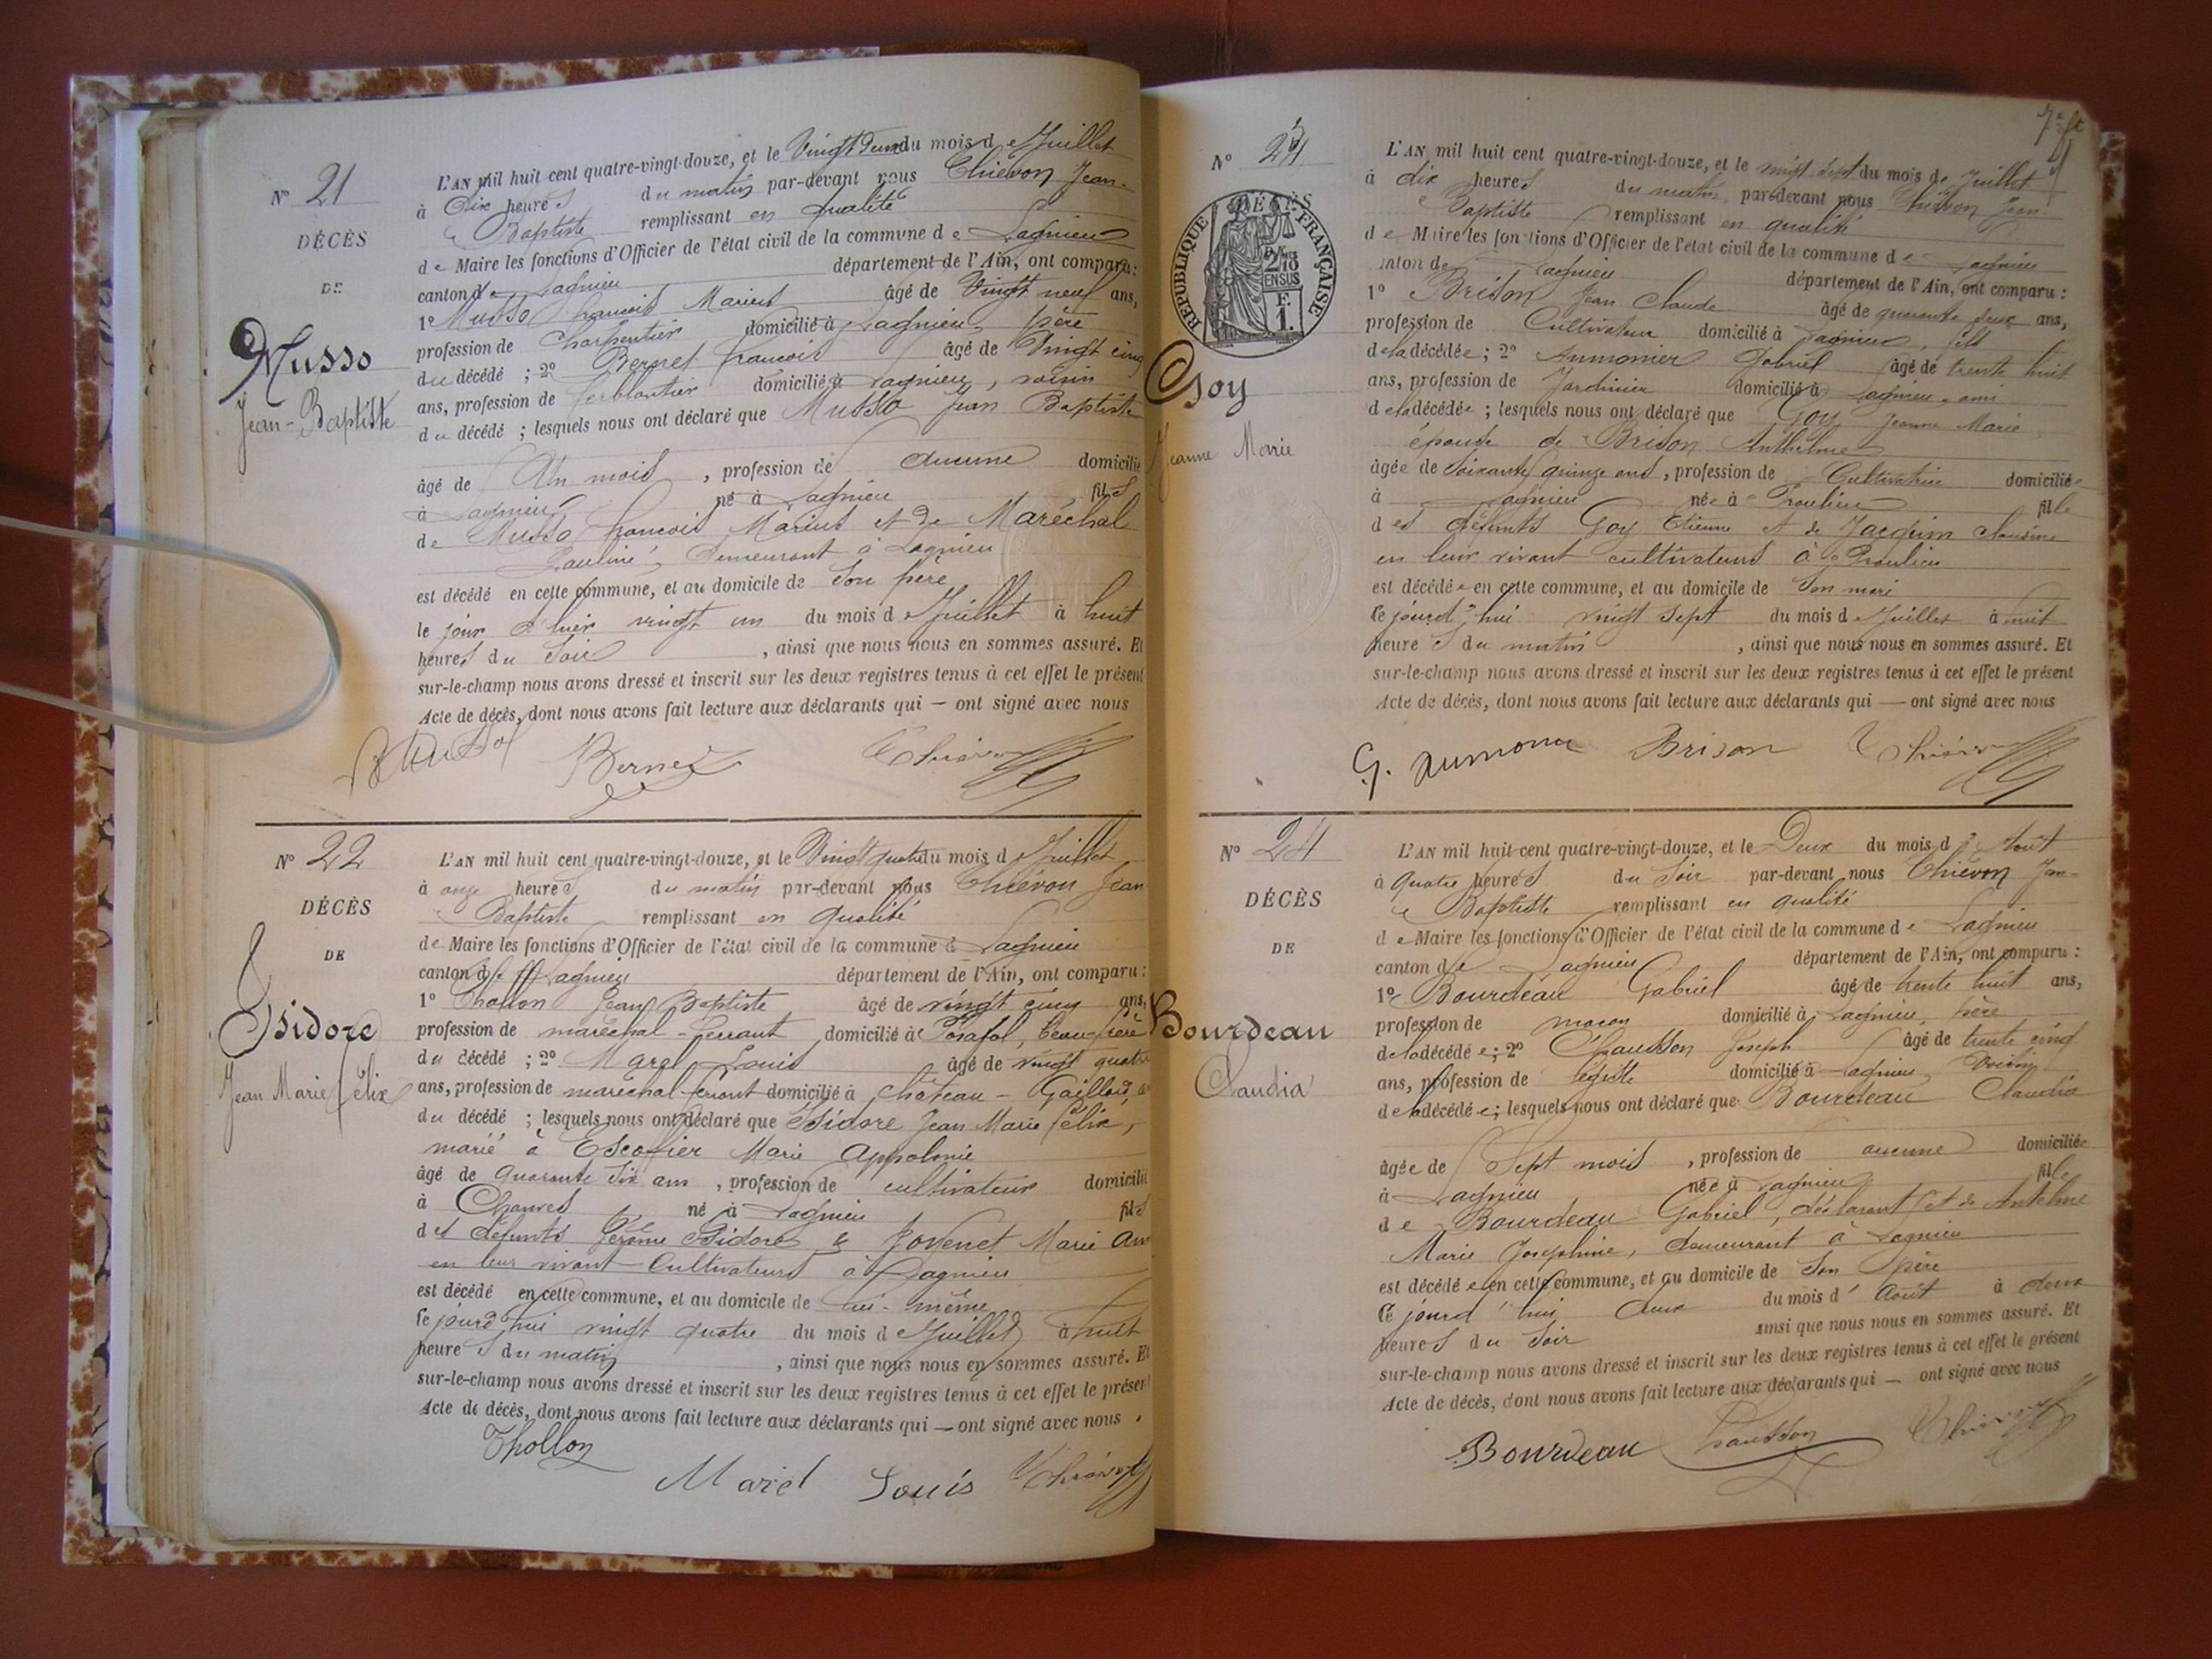 N° 21
DÉCÈS
DE
Musso
Jean-Baptiste
L'AN mil huit cent quatre-vingt-douze, et le Vingt Deux du mois de Juillet
à Dix heures du matin par-devant nous Thiévon Jean-
Baptiste remplissant en qualité
de Maire les fonctions d'Officier de l'état civil de la commune de Lagnieu
canton de Lagnieu département de l'Ain, ont comparu:
1° Musso francois Marius âgé de Vingt neuf ans,
profession de Charpentier domicilié à Lagnieu, père
du décédé ; 2° Bernet francois âgé de Vingt cinq
ans, profession de ferblantier domicilié à Lagnieu, voisin
du décédé ; lesquels nous ont déclaré que Musso Jean Baptiste
âgé de Un mois , profession de aucune domicilié
à Lagnieu né à Lagnieu fils
de Musso francois Marius et de Maréchal
Pauline, demeurant à Lagnieu
est décédé en cette commune, et au domicile de Son père
le jour d'hier vingt un du mois de Juillet à huit
heures du Soir , ainsi que nous nous en sommes assuré. Et
sur-le-champ nous avons dressé et inscrit sur les deux registres tenus à cet effet le présent
Acte de décès, dont nous avons fait lecture aux déclarants qui — ont signé avec nous
Bernet Thiévon
N° 22
DÉCÈS
DE
Isidore
Jean Marie félix
L'AN mil huit cent quatre-vingt-douze, et le Vingt quatre du mois de Juillet
à onze heures du matin par-devant nous Thiévon Jean
Baptiste remplissant en qualité
de Maire les fonctions d'Officier de l'état civil de la commune de Lagnieu
canton de Lagnieu département de l'Ain, ont comparu :
1° Thollon Jean Baptiste âgé de vingt cinq ans,
profession de maréchal-ferrant domicilié à Posafol, beau-frère
du décédé ; 2° Marel Louis âgé de vingt quatre
ans, profession de maréchal ferrant domicilié à Château-Gaillard,
du décédé ; lesquels nous ont déclaré que Isidore Jean Marie félix,
marié à Escoffier Marie Appolonie
âgé de quarante Six ans , profession de cultivateur domicilié
à Chanves né à Lagnieu fils
des défunts Jérôme Isidore & Jovenet Marie
en leur vivant Cultivateurs à Lagnieu
est décédé en cette commune, et au domicile de lui-même
ce jourd'hui vingt quatre du mois de Juillet à huit
heures du matin , ainsi que nous nous en sommes assuré. Et
sur-le-champ nous avons dressé et inscrit sur les deux registres tenus à cet effet le présent
Acte de décès, dont nous avons fait lecture aux déclarants qui — ont signé avec nous
Thollon
Marel Louis Thiévon
N°
RÉPUBLIQUE FRANÇAISE
2/10 EN SUS
F. 1.
Goy
Jeanne Marie
L'AN mil huit cent quatre-vingt-douze, et le vingt sept du mois de Juillet
à dix heures du matin par-devant nous Thiévon Jean-
Baptiste remplissant en qualité
de Maire les fonctions d'Officier de l'état civil de la commune de Lagnieu
canton de Lagnieu département de l'Ain, ont comparu :
1° Brison Jean Claude âgé de quarante deux ans,
profession de Cultivateur domicilié à Lagnieu, fils
de la décédée ; 2° Aumonier Gabriel âgé de trente huit
ans, profession de Jardinier domicilié à Lagnieu ami
de la décédée ; lesquels nous ont déclaré que Goy Jeanne Marie
épouse de Brison Anthelme
âgée de Soixante quinze ans, profession de Cultivatrice domiciliée
à Lagnieu née à Proulieu fille
des défunts Goy Etienne et de Jacquim Claudine
en leur vivant cultivateurs à Proulieu
est décédée en cette commune, et au domicile de Son mari
ce jourd'hui vingt sept du mois de Juillet à huit
heures du matin , ainsi que nous nous en sommes assuré. Et
sur-le-champ nous avons dressé et inscrit sur les deux registres tenus à cet effet le présent
Acte de décès, dont nous avons fait lecture aux déclarants qui — ont signé avec nous
G. Aumonier Brison Thiévon
N° 24
DÉCÈS
DE
Bourdeau
Claudia
L'AN mil huit cent quatre-vingt-douze, et le Deux du mois d'Août
à quatre heures du Soir par-devant nous Thiévon Jean-
Baptiste remplissant en qualité
de Maire les fonctions d'Officier de l'état civil de la commune de Lagnieu
canton de Lagnieu département de l'Ain, ont comparu :
1° Bourdeau Gabriel âgé de trente huit ans,
profession de maçon domicilié à Lagnieu, père
de la décédée ; 2° Chausson Joseph âgé de trente cinq
ans, profession de domicilié à Lagnieu Voisin
de la décédée ; lesquels nous ont déclaré que Bourdeau Claudia
âgée de Sept mois , profession de aucune domiciliée
à Lagnieu née à Lagnieu fille
de Bourdeau Gabriel, déclarant et de Antelme
Marie Josephine, demeurant à Lagnieu
est décédée en cette commune, et au domicile de Son père
Ce jourd'hui deux du mois d'Août à deux
heures du Soir ainsi que nous nous en sommes assuré. Et
sur-le-champ nous avons dressé et inscrit sur les deux registres tenus à cet effet le présent
Acte de décès, dont nous avons fait lecture aux déclarants qui — ont signé avec nous
Bourdeau Chausson Thiévon